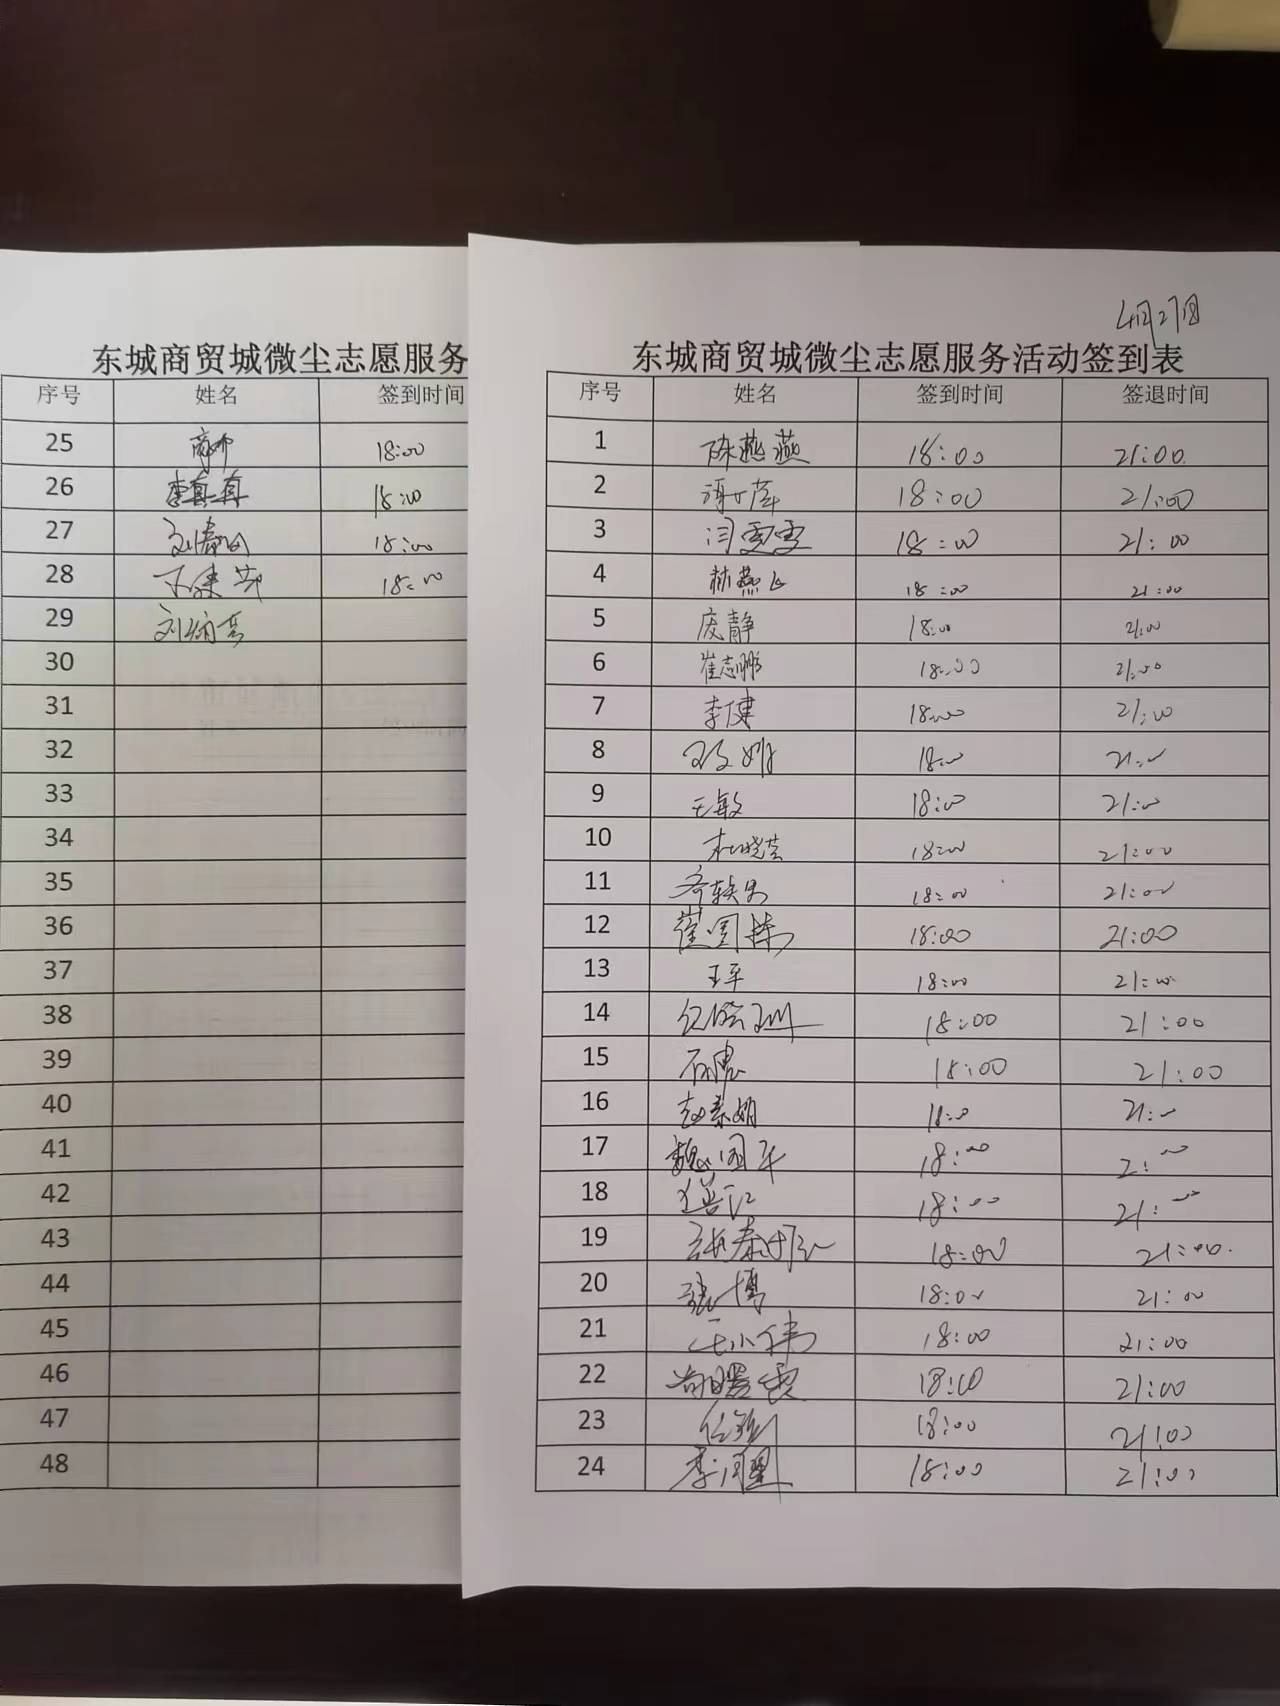 东城商贸城微尘志愿服务
序号 姓名 签到时间
25 18:00
26 李真真 18:00
27 18:00
28 18:00
29
30
31
32
33
34
35
36
37
38
39
40
41
42
43
44
45
46
47
48
4月27日
东城商贸城微尘志愿服务活动签到表
序号 姓名 签到时间 签退时间
1 陈燕燕 18:00 21:00
2 18:00 21:00
3 闫雯雯 18:00 21:00
4 林燕飞 18:00 21:00
5 庞静 18:00 21:00
6 崔志鹏 18:00 21:00
7 李健 18:00 21:00
8 18:00 21:00
9 王敏 18:00 21:00
10 杜晓芸 18:00 21:00
11 18:00 21:00
12 崔国栋 18:00 21:00
13 王平 18:00 21:00
14 18:00 21:00
15 石惠 18:00 21:00
16 赵素娟 18:00 21:00
17 魏国平 18:00 21:00
18 18:00 21:00
19 18:00 21:00
20 张博 18:00 21:00
21 王小伟 18:00 21:00
22 18:00 21:00
23 18:00 21:00
24 18:00 21:00